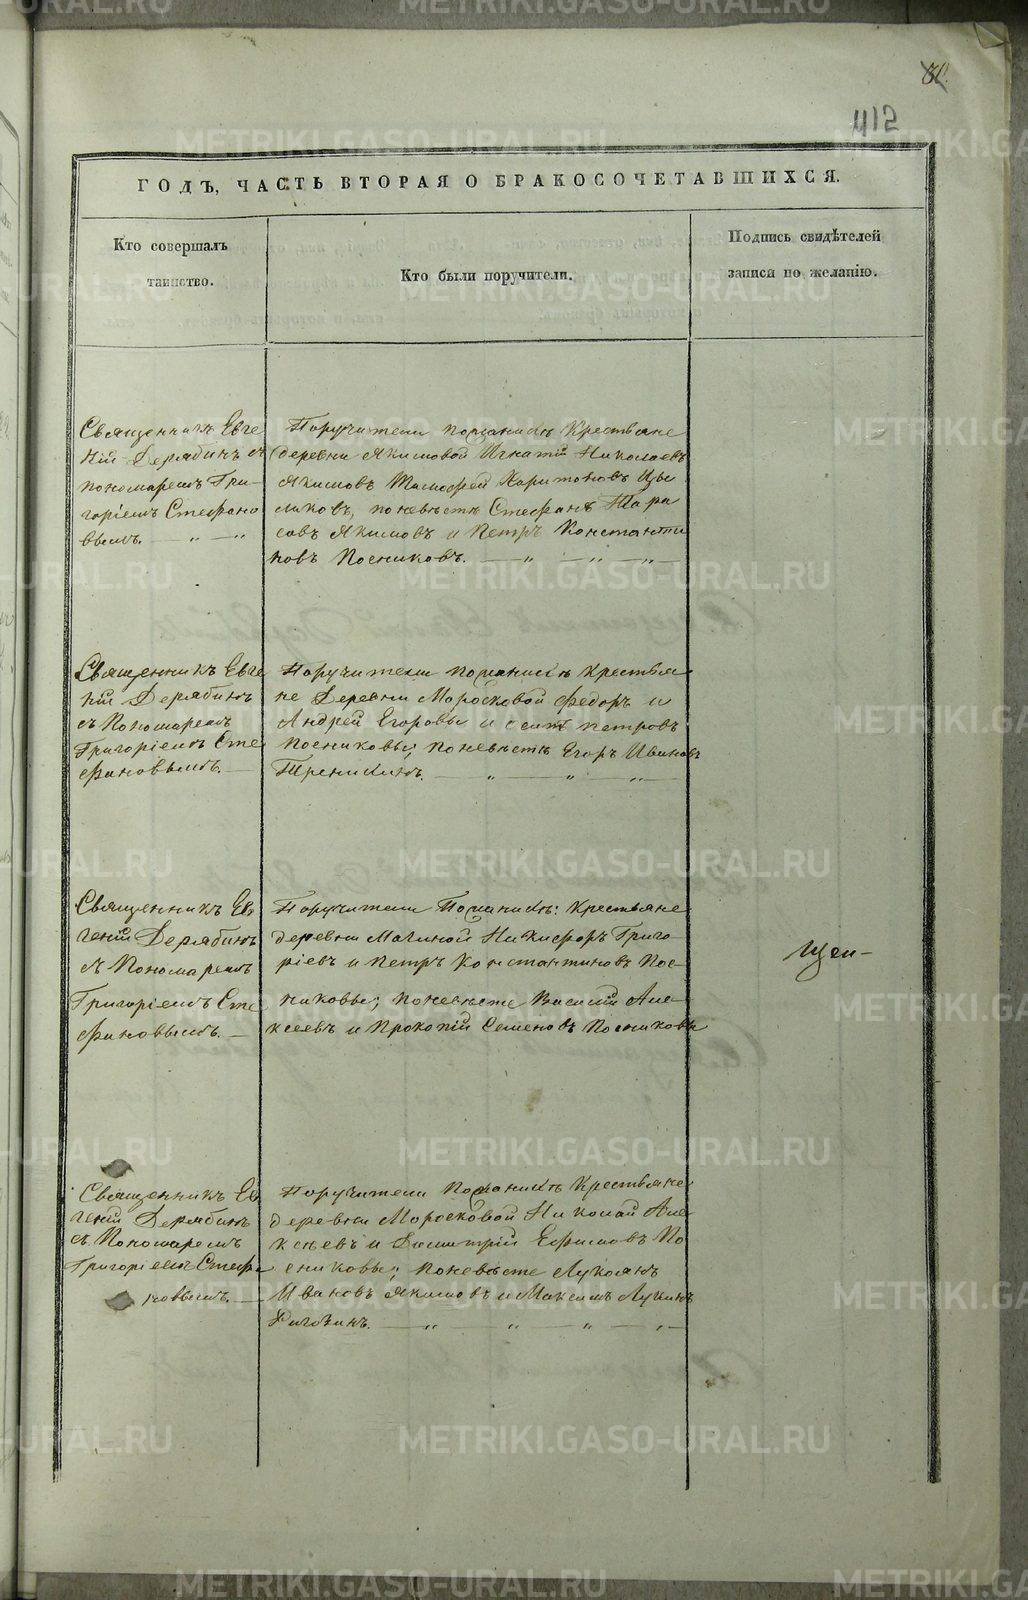 412
ГОДЪ, ЧАСТЬ ВТОРАЯ О БРАКОСОЧЕТАВШИХСЯ.
Кто совершалъ
таинство.
Кто были поручители.
Подпись свидѣтелей
записи по желанію.
Священникъ Евге
ній Дерябинъ съ
пономаремъ Гри-
горіемъ Стефано
вымъ. — „ — „
Поручители по женихѣ Крестьяне
деревни Якимовой Игнатій Николаевъ
Якимовъ Тимофей Харитоновъ
по невѣстѣ Стефанъ Тара
совъ Якимовъ и Петръ Константи
новъ Посниковъ. — „ — „ — „ —
Священникъ Евге
ній Дерябинъ
съ Пономаремъ
Григоріемъ Сте
фановымъ. —
Поручители по женихѣ крестья
не Деревни Моросковой Федоръ и
Андрей Егоровы и петровъ
Посниковы; по невѣстѣ Егоръ Ивановъ
— „ — „ — „ —
Священникъ Ев
геній Дерябинъ
съ Пономаремъ
Григоріемъ Сте
фановымъ. —
Поручители По женихѣ: крестьяне
деревни Никифоръ Григо
ріевъ и Петръ Константиновъ Пос-
никовы; по невѣсте Василій Але
ксеевъ и Прокопій Семеновъ Посниковы
Священникъ Ев
геній Дерябинъ
съ Пономаремъ
Григоріемъ Стефа
новымъ. —
Поручители По женихѣ Крестьяне
деревни Моросковой Николай Але
ксѣевъ и Димитрій Ефимовъ По
сниковы; по невѣсте Лукоянъ
Ивановъ Якимовъ и Максимъ Лукинъ
— „ — „ — „ — „ —
METRIKI.GASO-URAL.RU